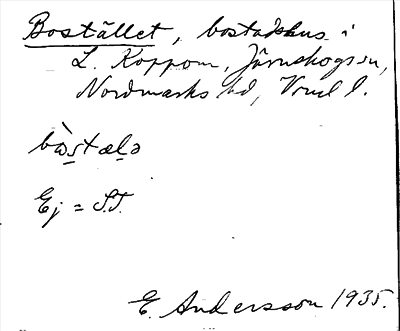 Bostället, bostadshus i
L. Koppom, Järnskogs sn,
Nordmarks hd, Vrml l.
bòstælə
Ej = S.T.
E. Andersson 1935.